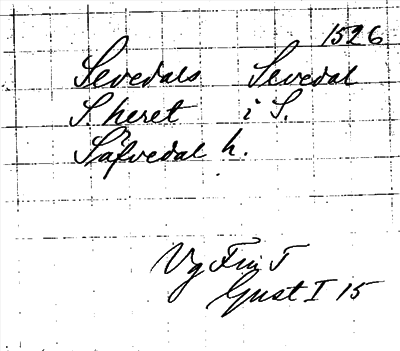 1526
Sevedals Sevedal
S. heret i S.
Säfvedal h.
Vg Fri T
Gust I 15